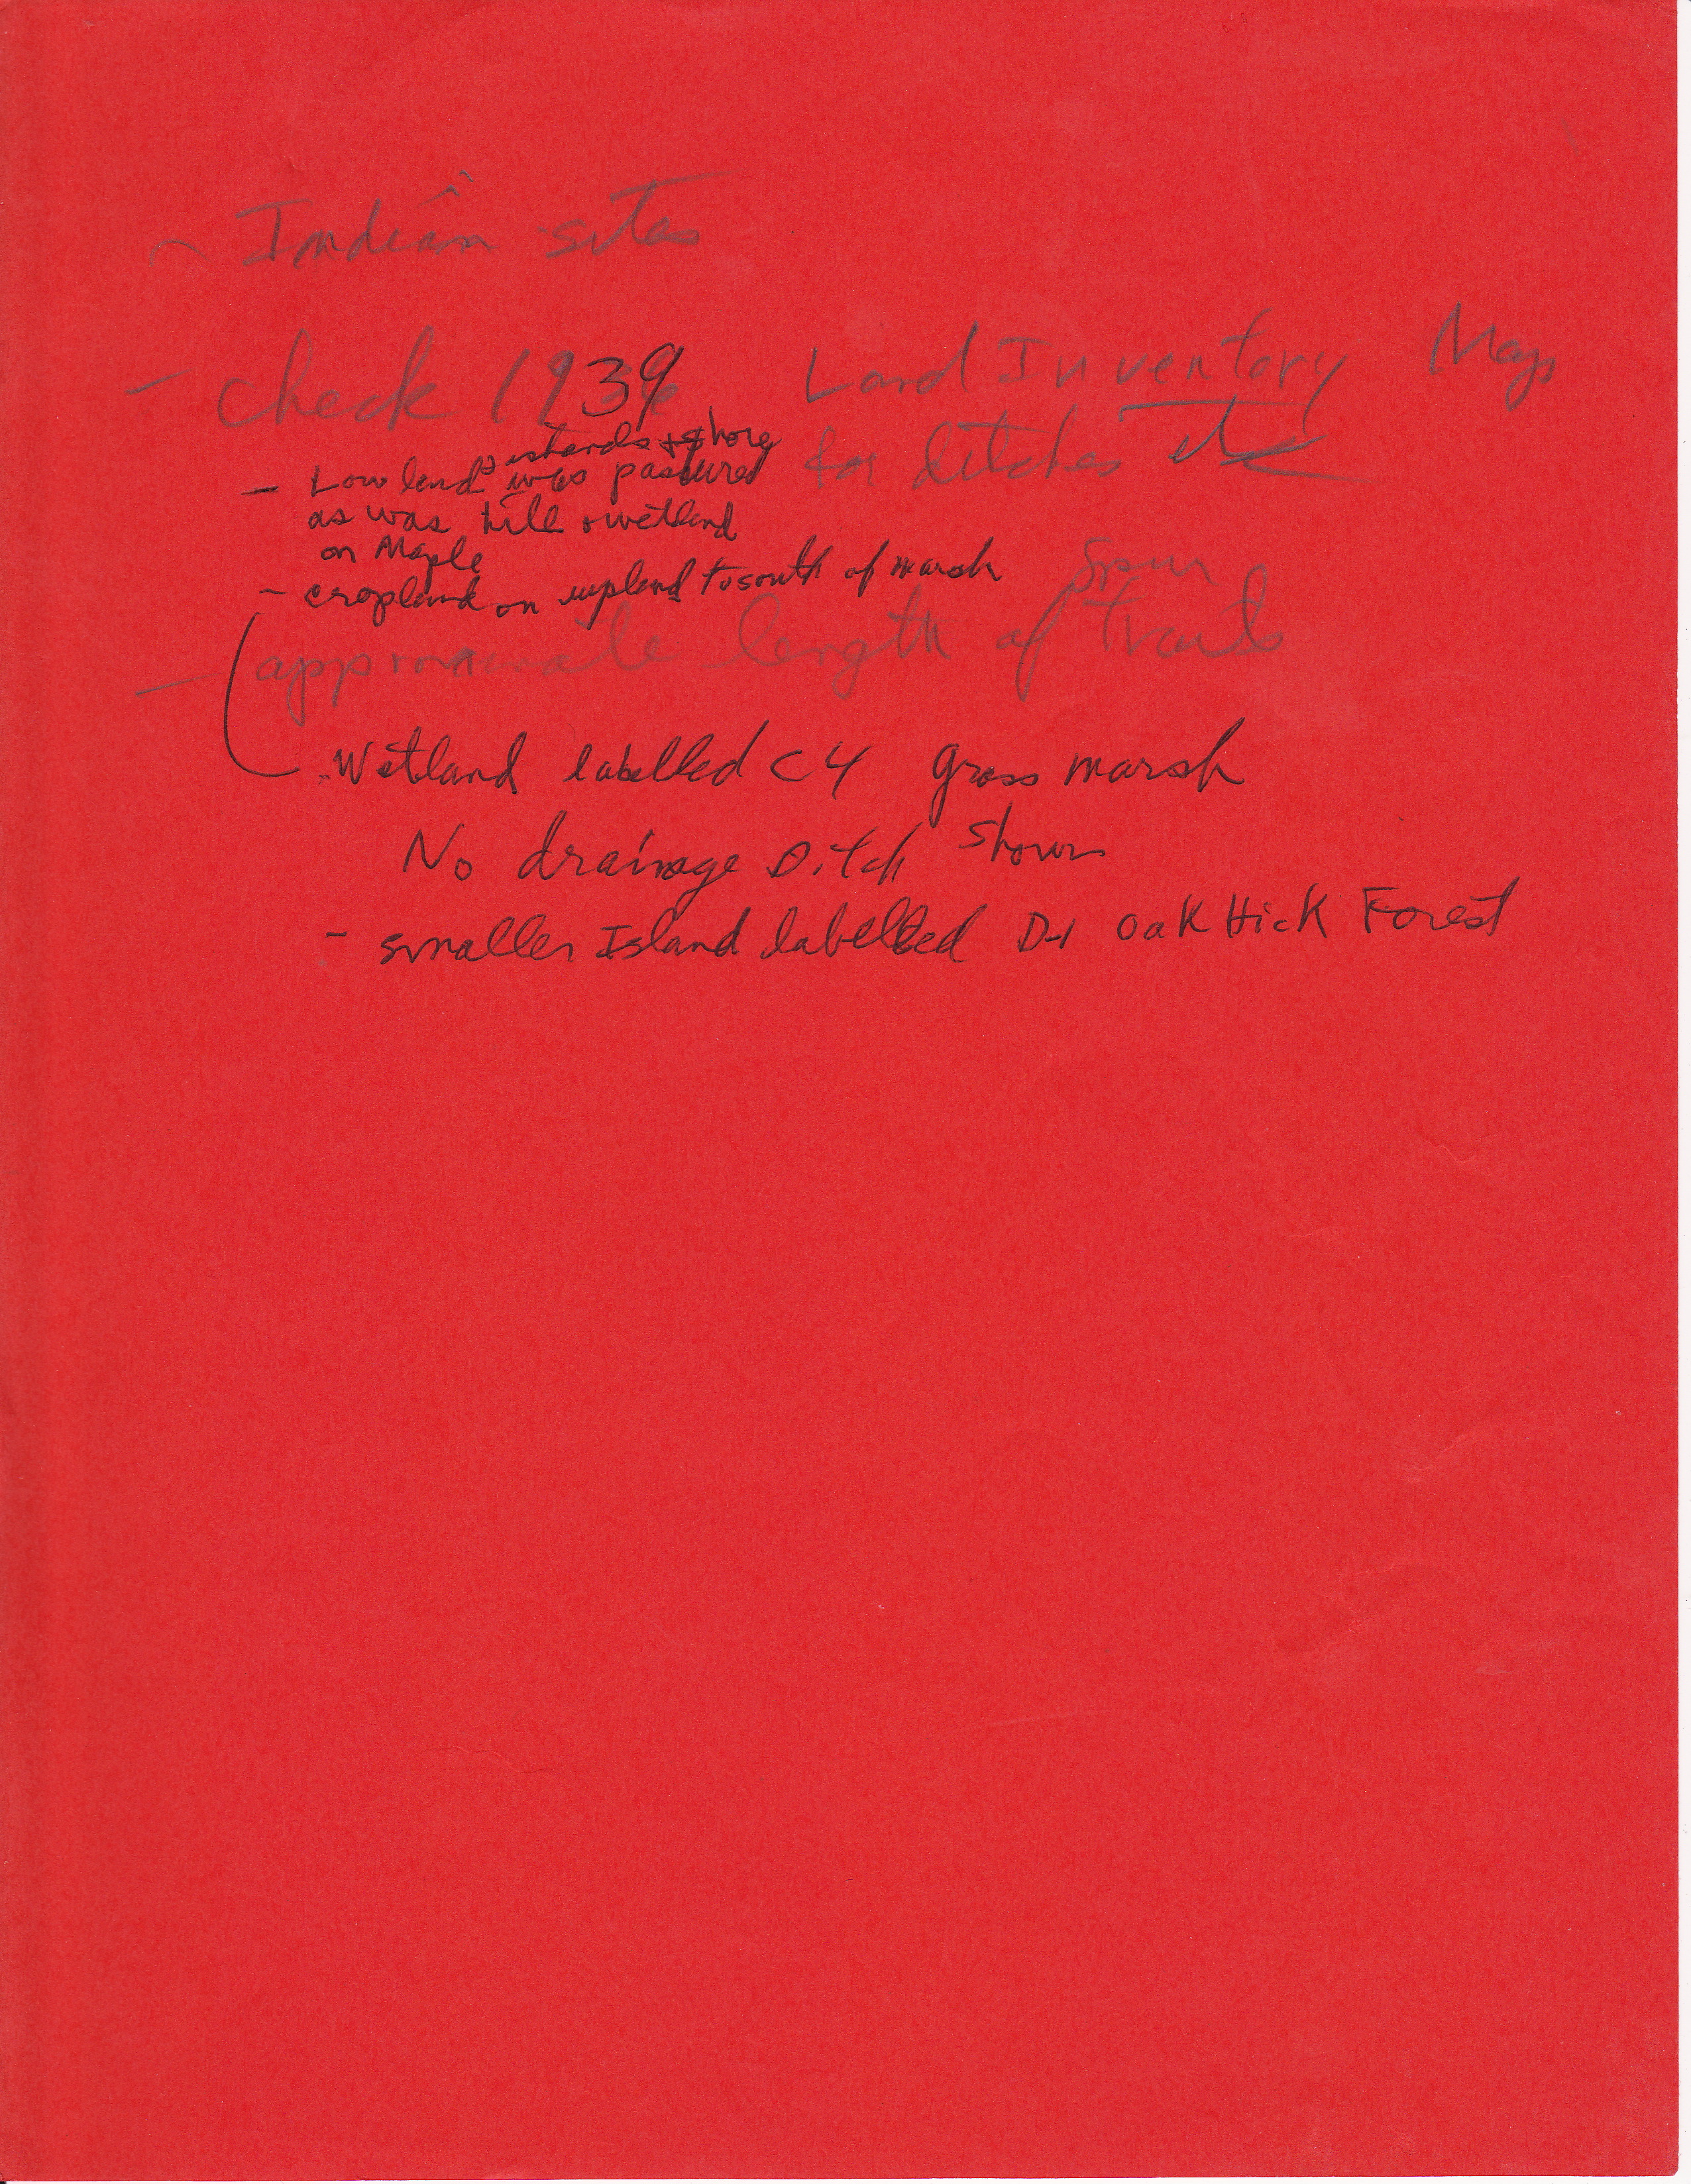 - Indian sites
- Check 1939 Land Inventory Map
for ditches etc
islands + shore
- Low land was pastured
as was hill + wetland
on Maple
- cropland on upland to south of marsh
Spur
- approximate length of trails
- Wetland labelled C4 grass marsh
No drainage Ditch shown
- smaller Island labelled D-1 Oak Hick Forest